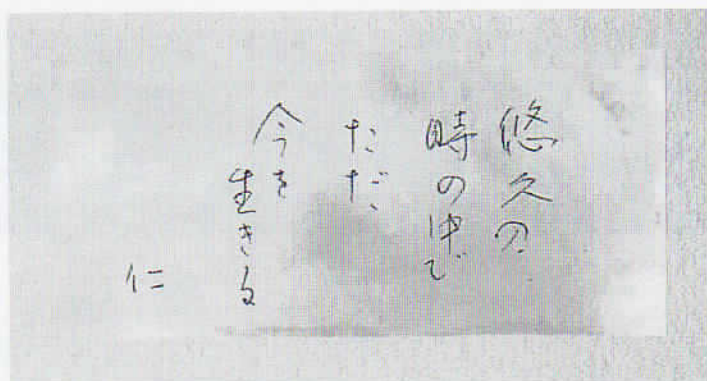 悠久の
時の中で
ただ、
今を
生きる
仁